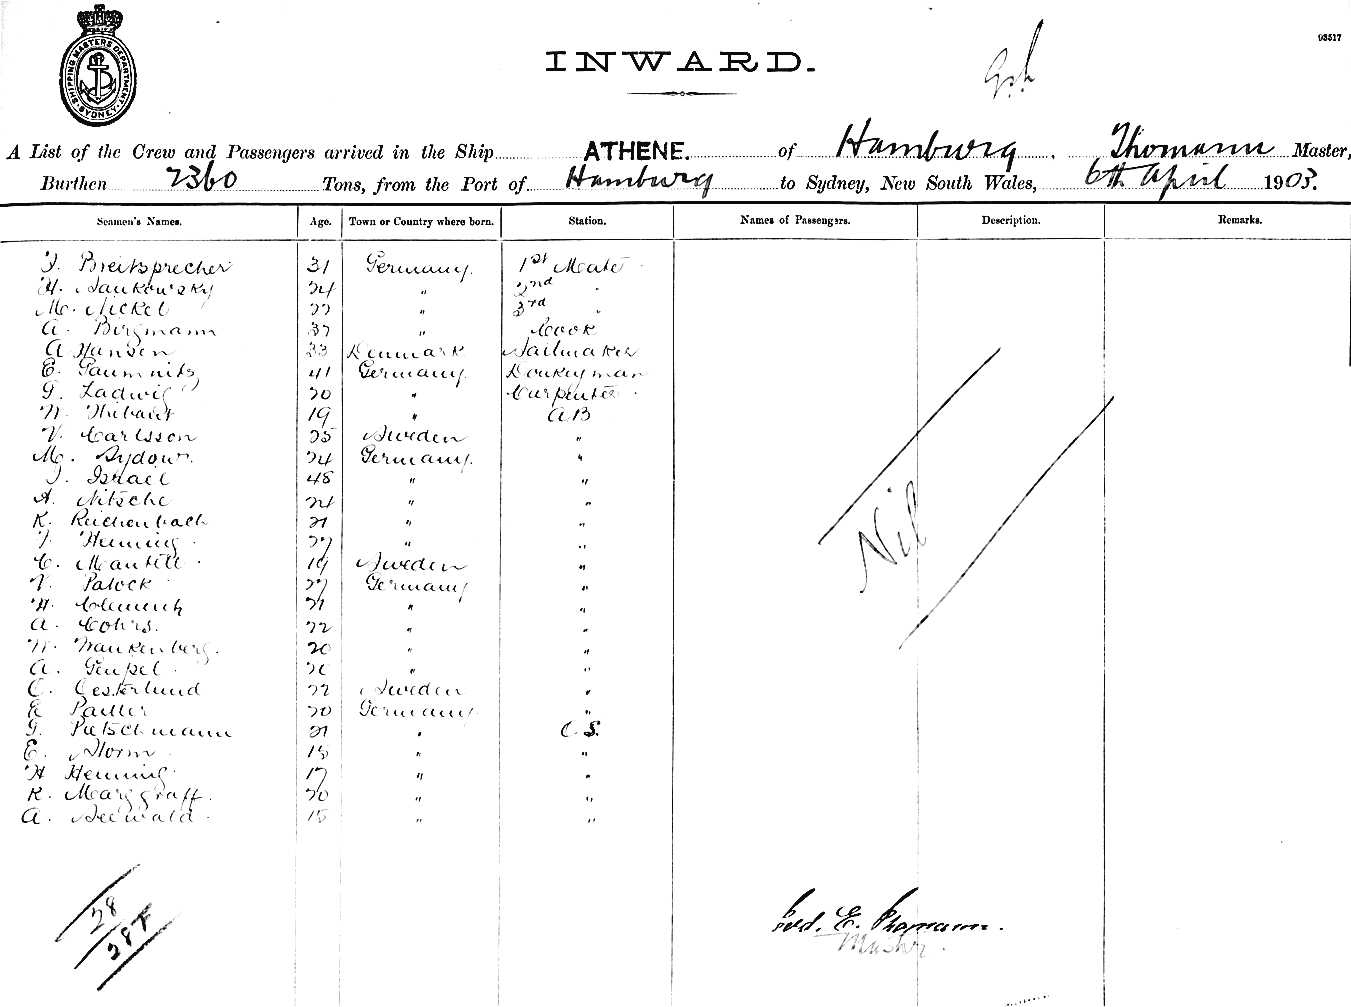 SHIPPING MASTERS DEPARTMENT SYDNEY
93517
INWARD.
A List of the Crew and Passengers arrived in the Ship ATHENE. of Hamburg, Thomann Master,
Burthen 2360 Tons, from the Port of Hamburg to Sydney, New South Wales, 6th April 1903.
Seamen's Names. Age. Town or Country where born. Station. Names of Passengers. Description. Remarks.
Breitsprecher 31 Germany. 1st Mate
H. Jankowsky 24 " 2nd "
M. Nickel 22 " 3rd "
A. Bergmann 37 " Cook
A Hansen 33 Denmark Sailmaker
E. 41 Germany. Donkeyman
G. Ladwig 20 " Carpenter
19 " AB
V. Carlsson 25 Sweden "
M. Sydow. 24 Germany. "
J. Israel 48 " "
A. Nitsche 24 " "
K. Reichenbach 21 " "
Henning 27 " "
C. 19 Sweden "
Patock 27 Germany "
H. 21 " "
A. Cohrs. 22 " "
W. Wankenberg. 20 " "
A. 20 " "
C. Oesterlund 22 Sweden "
20 Germany "
G. Pietschmann 21 " O.S.
E. Storm 18 " "
H Henning 17 " "
R. Marggraff. 20 " "
A. Seewald 15 " "
Nil
28
28
E. Thomann.
Master.